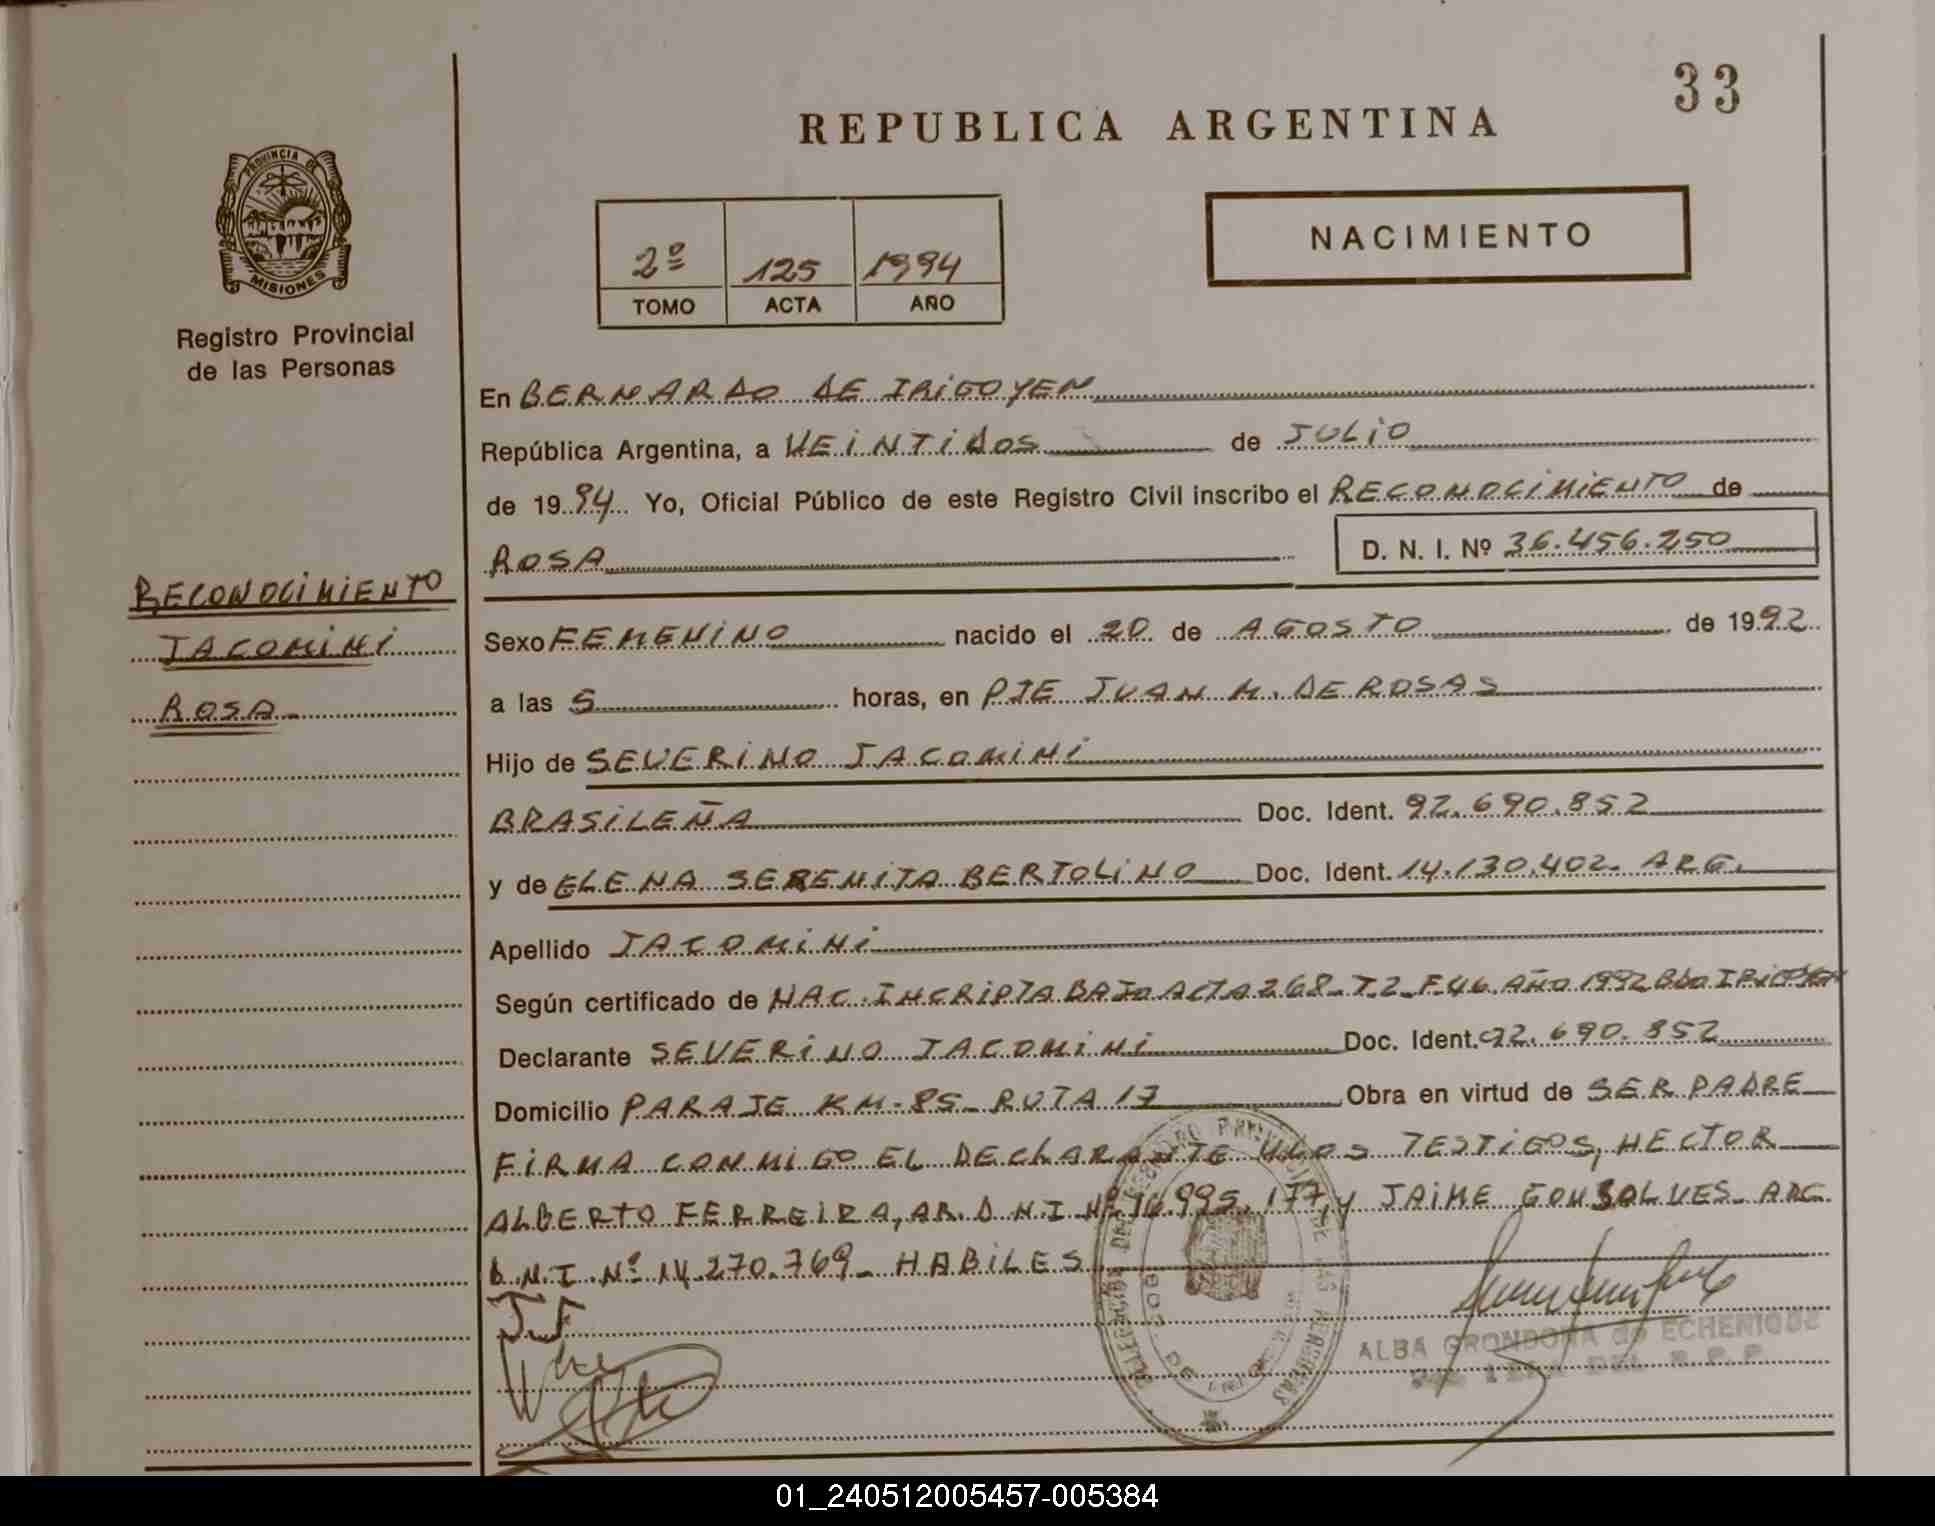 33
REPUBLICA ARGENTINA
PROVINCIA DE
MISIONES
Registro Provincial
de las Personas
2º 125 1994
TOMO ACTA AÑO
NACIMIENTO
En BERNARDO DE IRIGOYEN
República Argentina, a VEINTIDOS de JULIO
de 1994 Yo, Oficial Público de este Registro Civil inscribo el RECONOCIMIENTO de
ROSA D. N. I. Nº 36.456.250
RECONOCIMIENTO
JACOMINI
ROSA
Sexo FEMENINO nacido el 20 de AGOSTO de 1992
a las 5 horas, en PJE JUAN M. DE ROSAS
Hijo de SEVERINO JACOMINI
BRASILEÑA Doc. Ident. 92.690.852
y de ELENA SERENITA BERTOLINO Doc. Ident. 14.130.402. ARG.
Apellido JACOMINI
Según certificado de NAC. INCRIPTA BAJO ACTA 268 T.2 F.46 AÑO 1992 Bdo IRIGOYEN
Declarante SEVERINO JACOMINI Doc. Ident. 92.690.852
Domicilio PARAJE KM. 85 RUTA 17 Obra en virtud de SER PADRE
FIRMA CONMIGO EL DECLARANTE Y LOS TESTIGOS, HECTOR
ALBERTO FERREIRA, AR. D.N.I Nº 16.995.177, y JAIME GONSALVES ARG.
D.N.I. Nº 14.270.769 HABILES
J.F
ALBA GRONDONA de ECHENIQUE
DEL R.P.P.
01_240512005457-005384